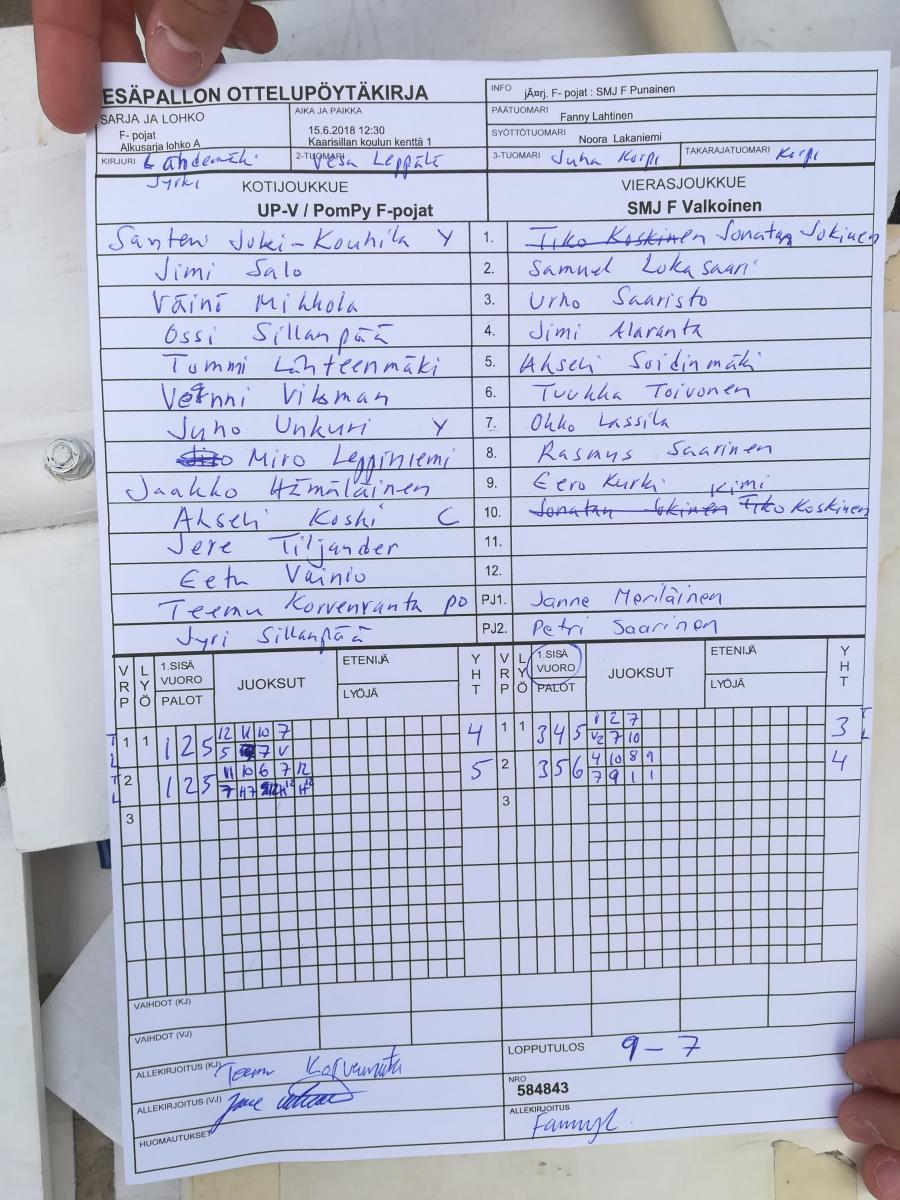 ESÄPALLON OTTELUPÖYTÄKIRJA
INFO jÄ¤rj. F- pojat : SMJ F Punainen
SARJA JA LOHKO
F- pojat
Alkusarja lohko A
AIKA JA PAIKKA
15.6.2018 12:30
Kaarisillan koulun kenttä 1
PÄÄTUOMARI Fanny Lahtinen
SYÖTTÖTUOMARI Noora Lakaniemi
KIRJURI Lähdemäki Jyrki
2-TUOMARI Vesa Leppälä
3-TUOMARI Juha Korpi
TAKARAJATUOMARI Korpi
KOTIJOUKKUE
UP-V / PomPy F-pojat
VIERASJOUKKUE
SMJ F Valkoinen
Santeri Joki-Kouhila Y 1. Tiko Koskinen Jonatan Jokinen
Jimi Salo 2. Samuel Lokasaari
Väinö Mikkola 3. Urho Saaristo
Ossi Sillanpää 4. Jimi Alaranta
Tommi Lähteenmäki 5. Akseli Soidinmäki
Viksman 6. Tuukka Toivonen
Juho Unkuri Y 7. Okko Lassila
Miro Leppiniemi 8. Rasmus Saarinen
Jaakko Hämäläinen 9. Eero Kurki
Akseli Koski C 10. Jonatan Jokinen Tiko Kimi Koskinen
Jere Tiljander 11.
Eetu Väinio 12.
Teemu Korvenranta PO PJ1. Janne Meriläinen
Jyri Sillanpää PJ2. Petri Saarinen
VRP LYÖ 1.SISÄ VUORO PALOT JUOKSUT ETENIJÄ LYÖJÄ YHT VRP LYÖ 1.SISÄ VUORO PALOT JUOKSUT ETENIJÄ LYÖJÄ YHT
TL 1 1 1 2 5 12 11 10 7 4 1 1 3 4 5 1 2 7 3 TL
5 7 V V2 7 10
TL 2 1 2 5 11 10 6 7 12 5 2 3 5 6 4 10 8 9 4
7 H7 7 9 1 1
3 3
VAIHDOT (KJ)
VAIHDOT (VJ)
ALLEKIRJOITUS (KJ) Teemu Korvenranta
LOPPUTULOS 9-7
ALLEKIRJOITUS (VJ)
NRO
584843
HUOMAUTUKSET
ALLEKIRJOITUS
FannyL.